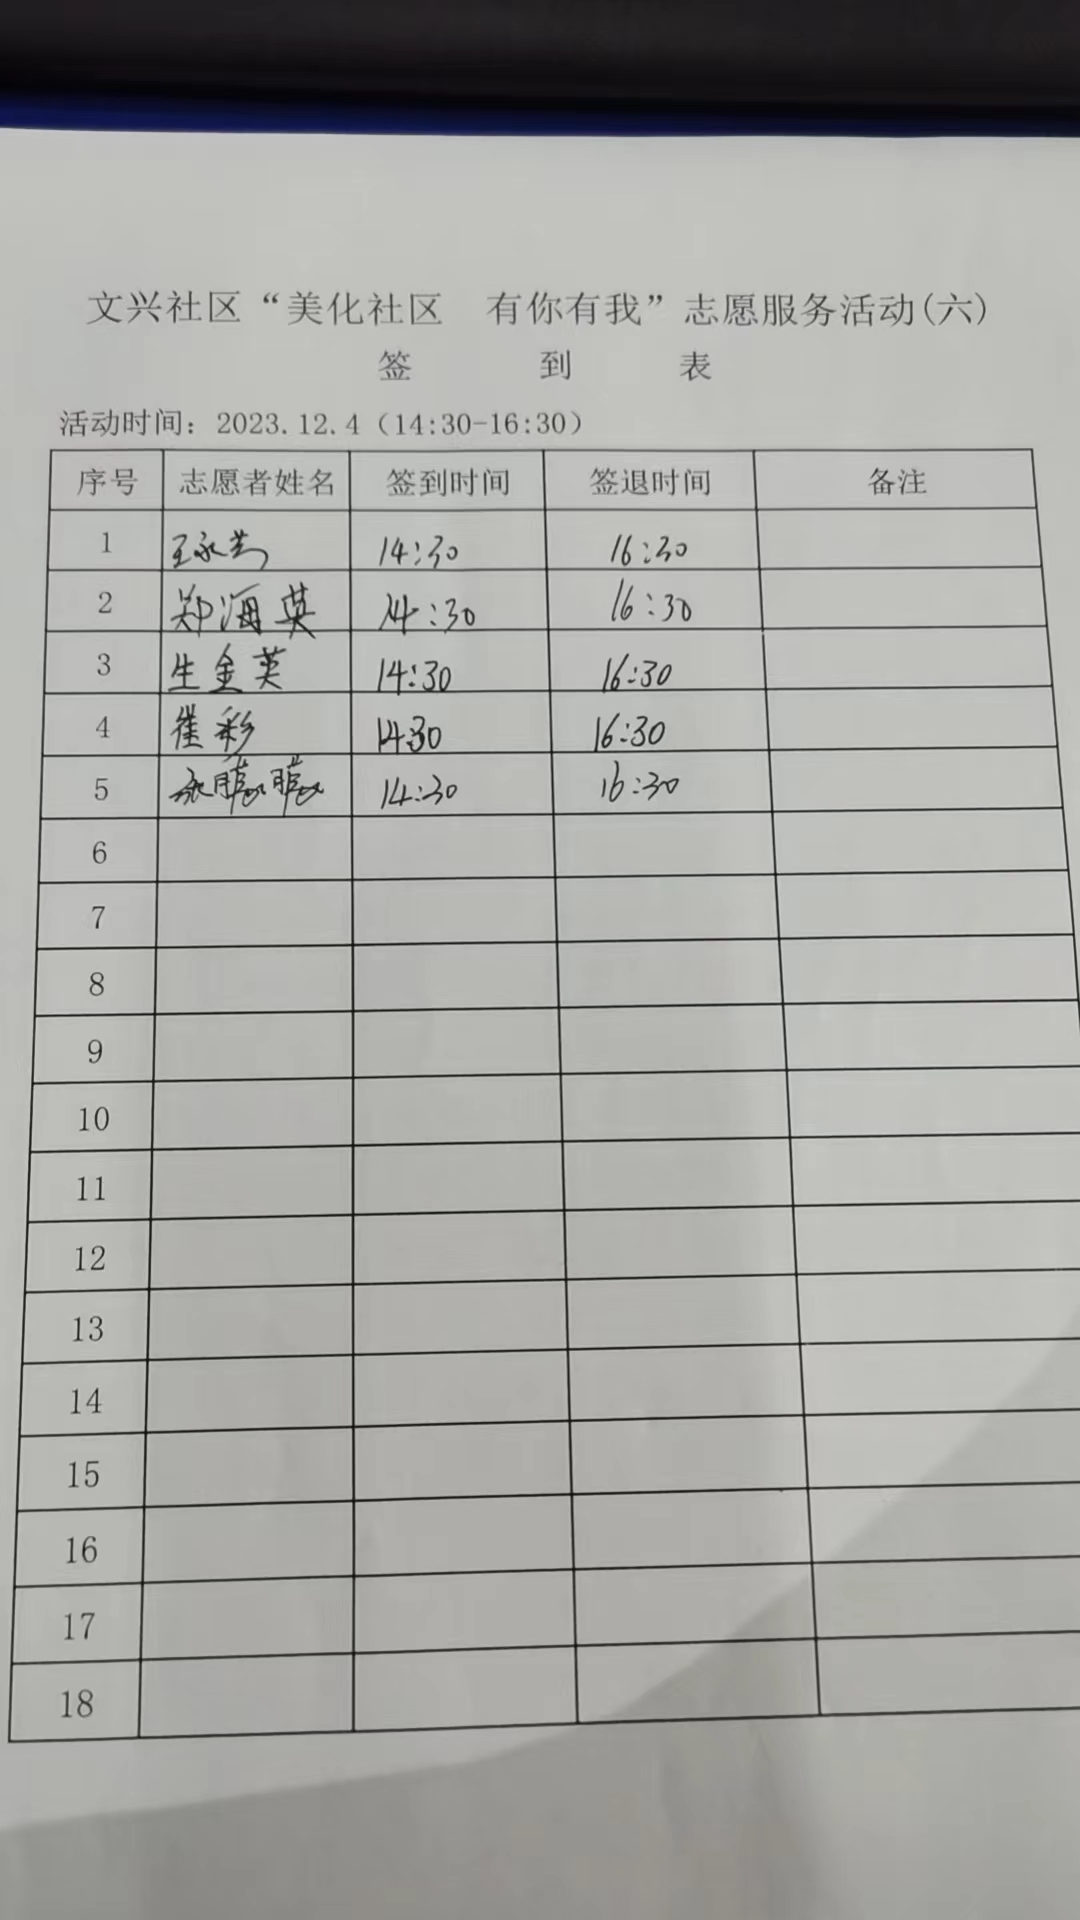 文兴社区“美化社区　有你有我”志愿服务活动(六)
签 到 表
活动时间：2023.12.4（14:30-16:30）
序号 志愿者姓名 签到时间 签退时间 备注
1 王永兰 14:30 16:30
2 郑海英 14:30 16:30
3 生金英 14:30 16:30
4 崔彩 14:30 16:30
5 14:30 16:30
6
7
8
9
10
11
12
13
14
15
16
17
18